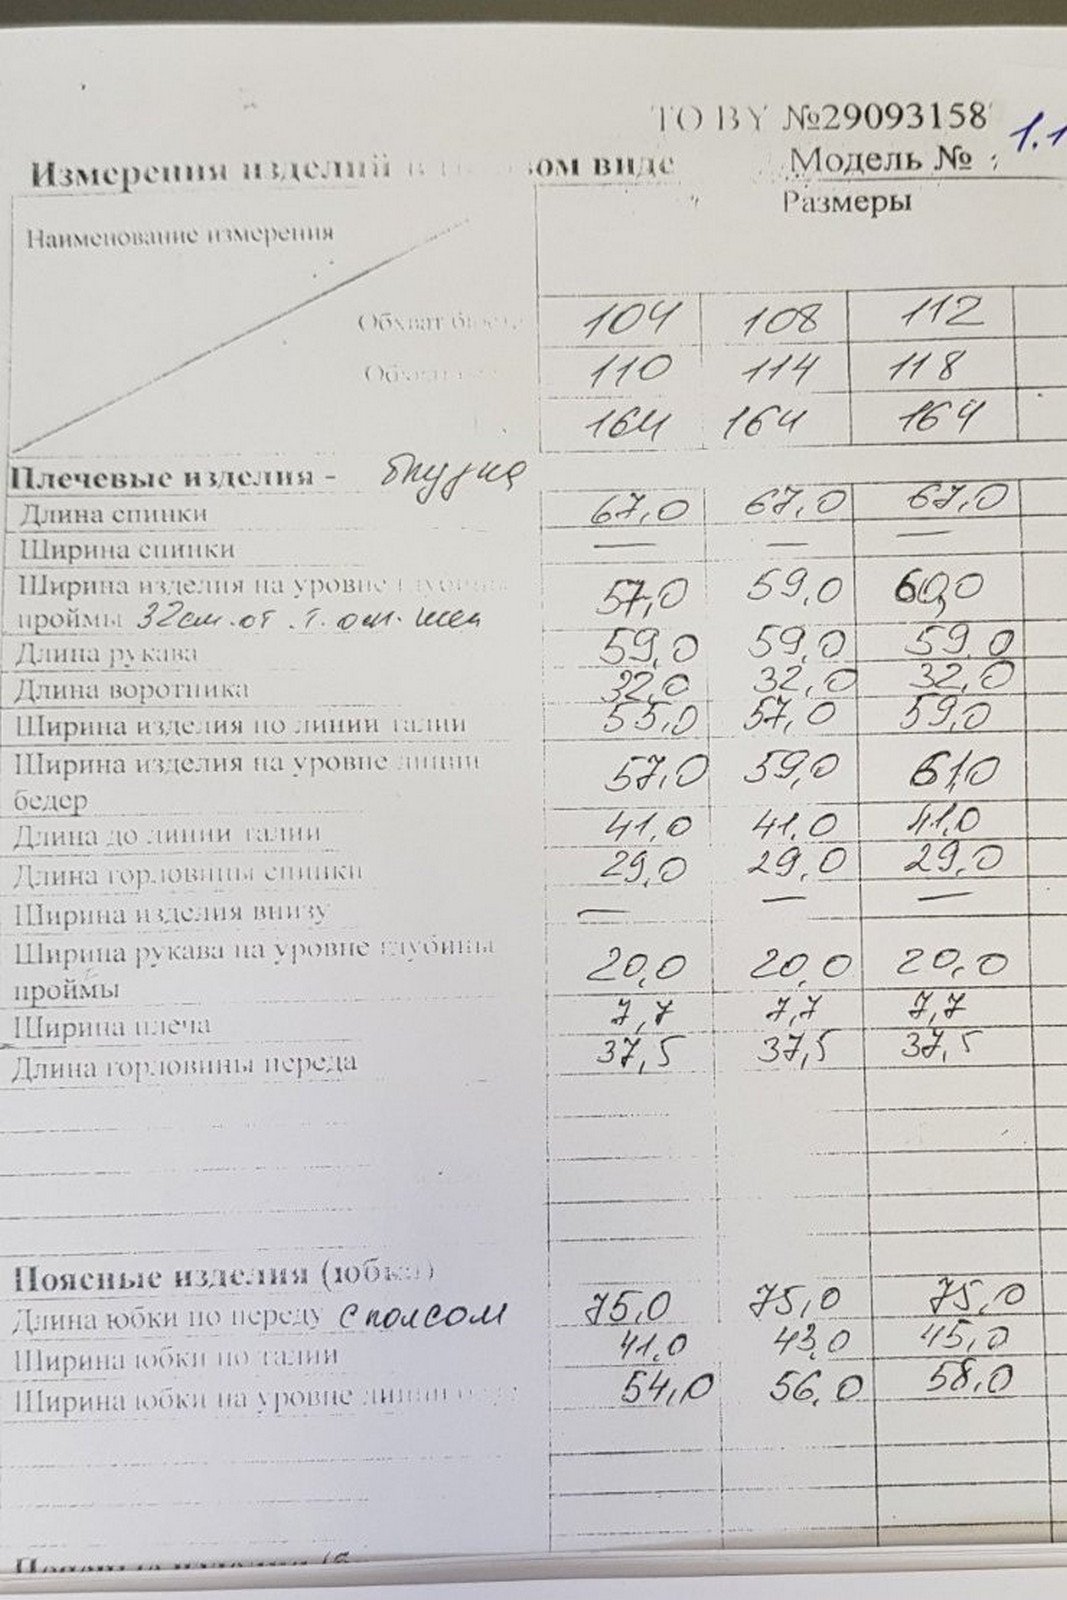 ТО BY №29093158
1.1
Измерения изделий в виде
Модель №
Размеры
Наименование измерения
Обхват 104 108 112
110 114 118
164 164 164
Плечевые изделия - блузка
Длина спинки 67,0 67,0 67,0
Ширина спинки — — —
Ширина изделия на уровне глубины
проймы 32см. от .т. осн. шеи 57,0 59,0 60,0
Длина рукава 59,0 59,0 59,0
Длина воротника 32,0 32,0 32,0
Ширина изделия по линии талии 55,0 57,0 59,0
Ширина изделия на уровне линии
бедер 57,0 59,0 61,0
Длина до линии талии 41,0 41,0 41,0
Длина горловины спинки 29,0 29,0 29,0
Ширина изделия внизу — — —
Ширина рукава на уровне глубины
проймы 20,0 20,0 20,0
Ширина плеча 7,7 7,7 7,7
Длина горловины переда 37,5 37,5 37,5
Поясные изделия (юбка)
Длина юбки по переду с поясом 75,0 75,0 75,0
Ширина юбки по талии 41,0 43,0 45,0
Ширина юбки на уровне линии 54,0 56,0 58,0